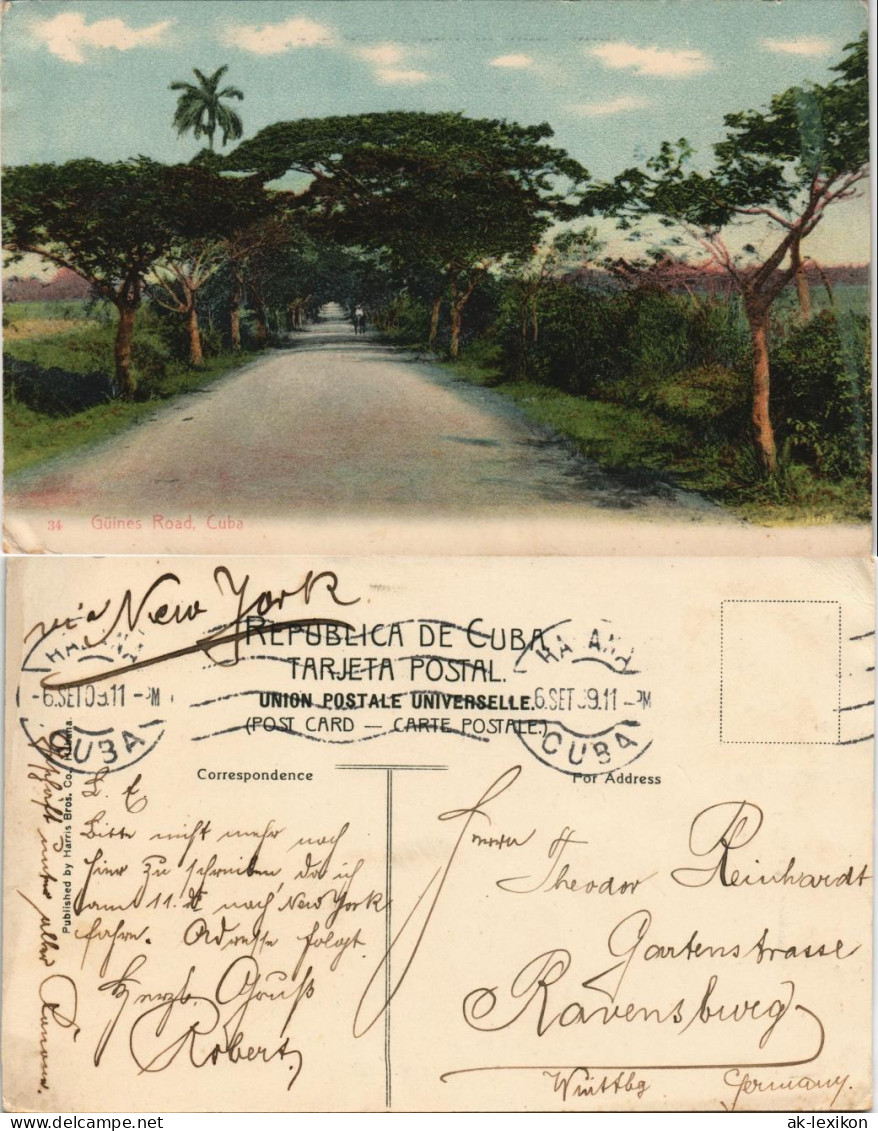 34 Güines Road, Cuba
via New York
REPUBLICA DE CUBA
TARJETA POSTAL.
UNION POSTALE UNIVERSELLE.
(POST CARD — CARTE POSTALE)
HABANA
-6.SET 09.11 -PM
CUBA
HABANA
6.SET 09.11 -PM
CUBA
Correspondence
For Address
Published by Harris Bros. Co., Habana.
L. E
Bitte nicht mehr nach
hier zu schreiben, da ich
am 11. nach New York
fahre. Adresse folgt
Herzl. Gruß
Robert
unter aller
Herrn
Theodor Reinhardt
Gartenstrasse
Ravensburg
Württbg Germany.
delcampe.net
ak-lexikon